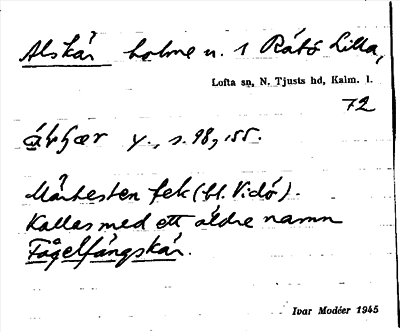 Alskär holme n. 1 Rátö Lilla,
Lofta sn, N. Tjusts hd, Kalm. l.
72
y., s. 98, 155.
fek (bl. Vidö).
Kallas med ett äldre namn
Fågelfångskär.
Ivar Modéer 1945